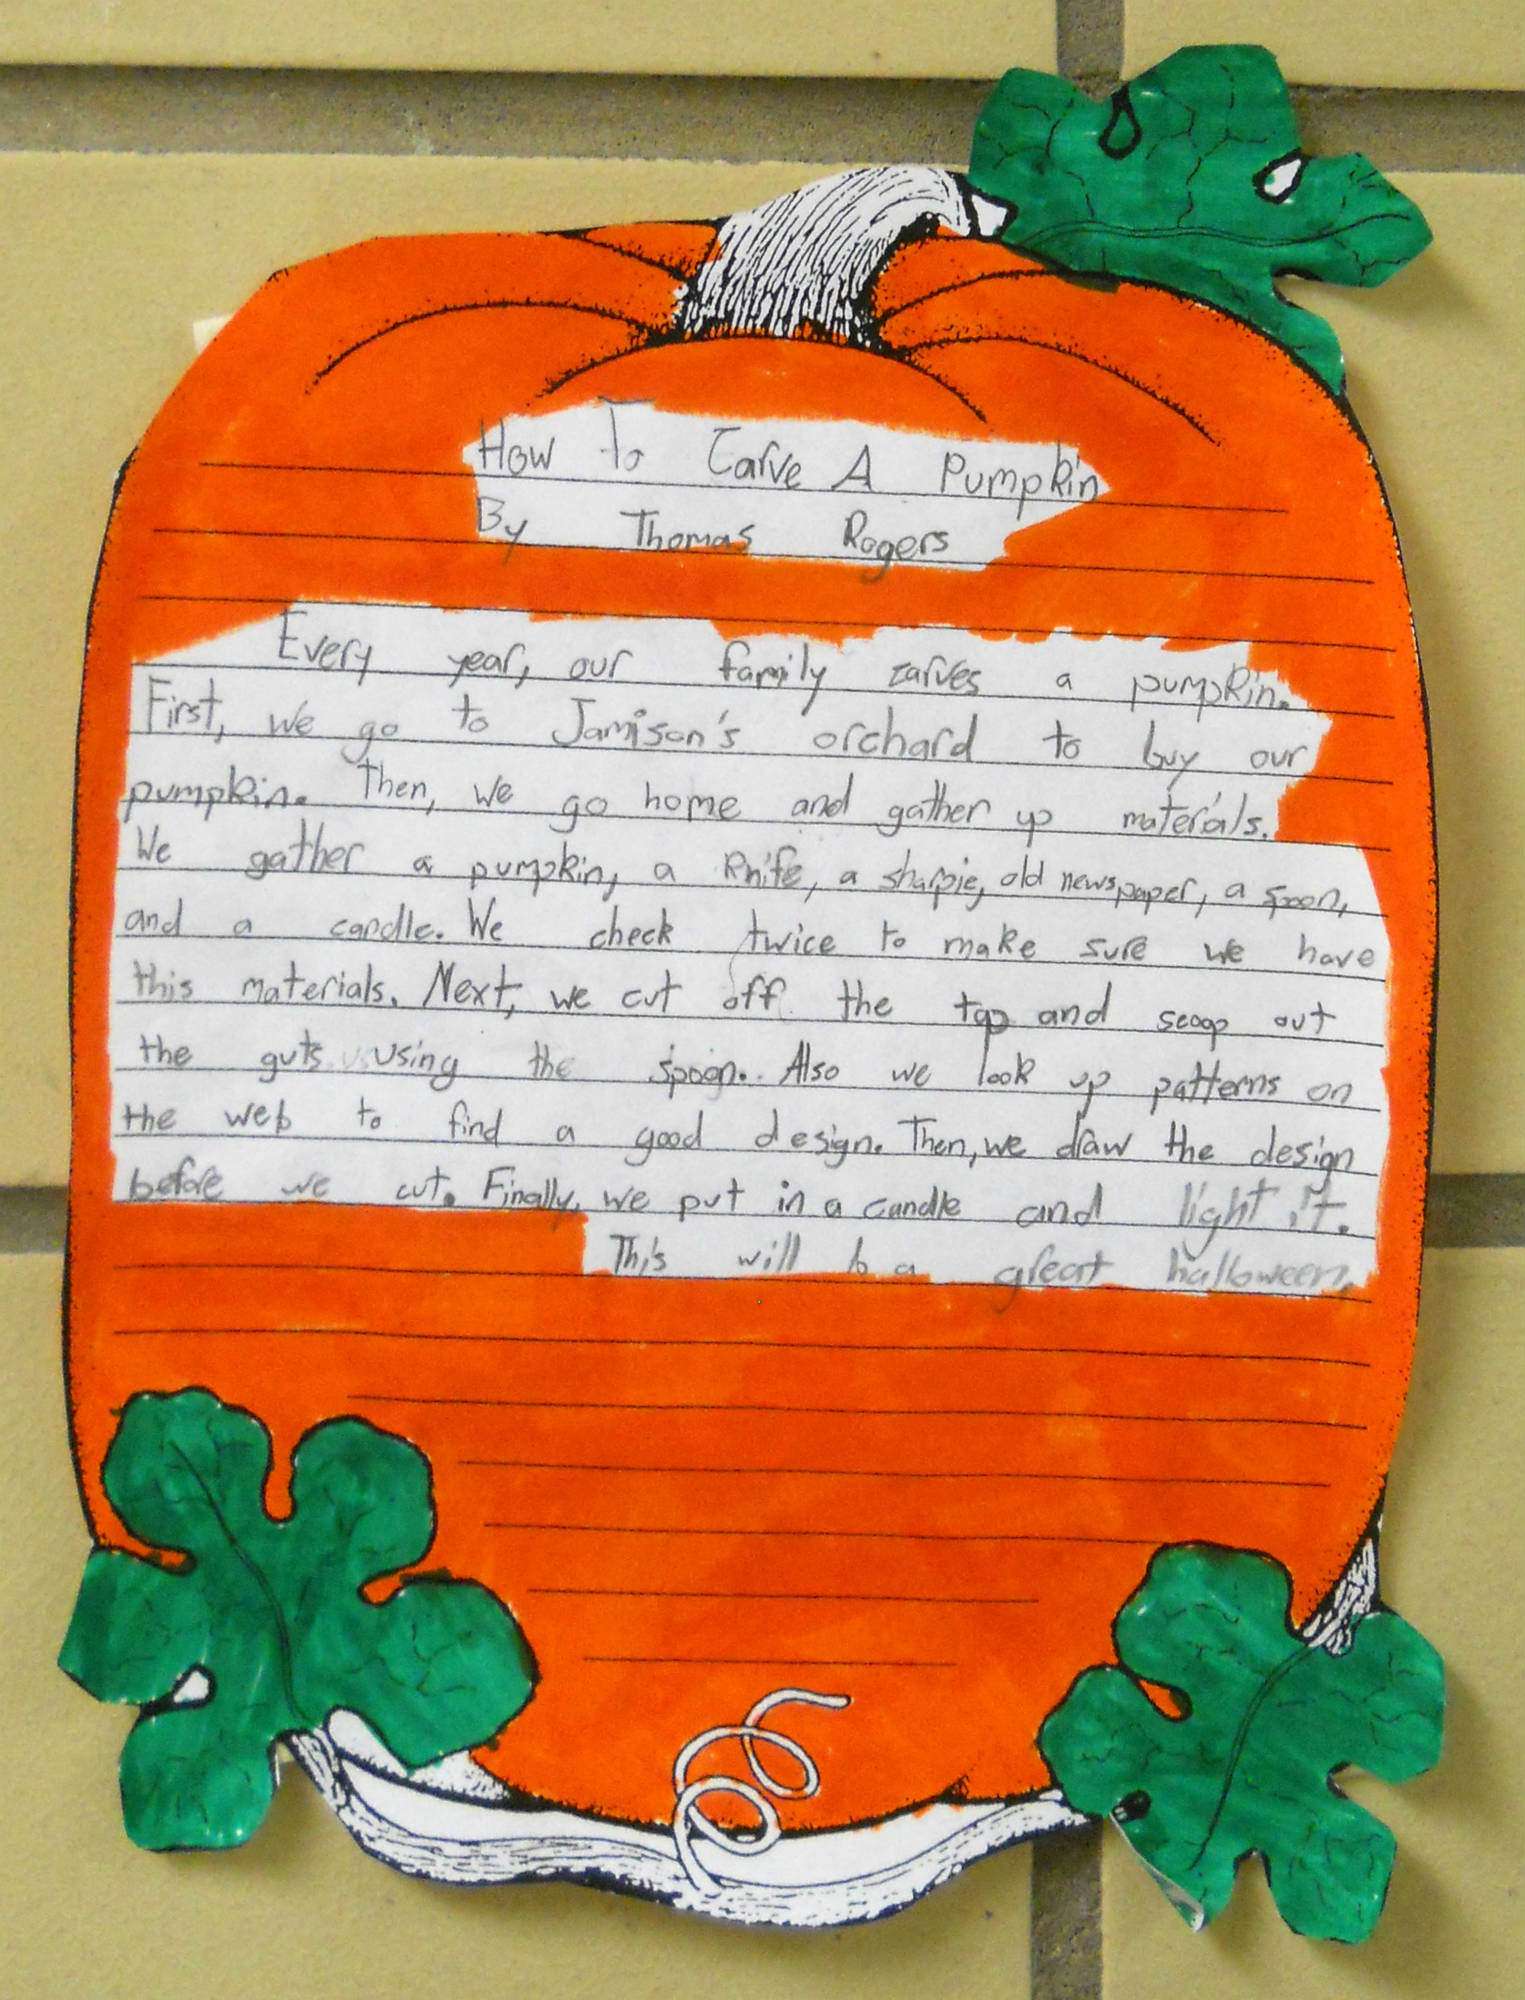 How to Carve A Pumpkin
By Thomas Rogers
Every year, our family carves a pumpkin.
First, we go to Jamison's orchard to buy our
pumpkin. Then, we go home and gather up materials.
We gather a pumpkin, a knife, a sharpie, old newspaper, a spoon,
and a candle. We check twice to make sure we have
this materials. Next, we cut off the top and scoop out
the guts using the spoon. Also we look up patterns on
the web to find a good design. Then, we draw the design
before we cut. Finally, we put in a candle and light it.
This will b a great halloween.